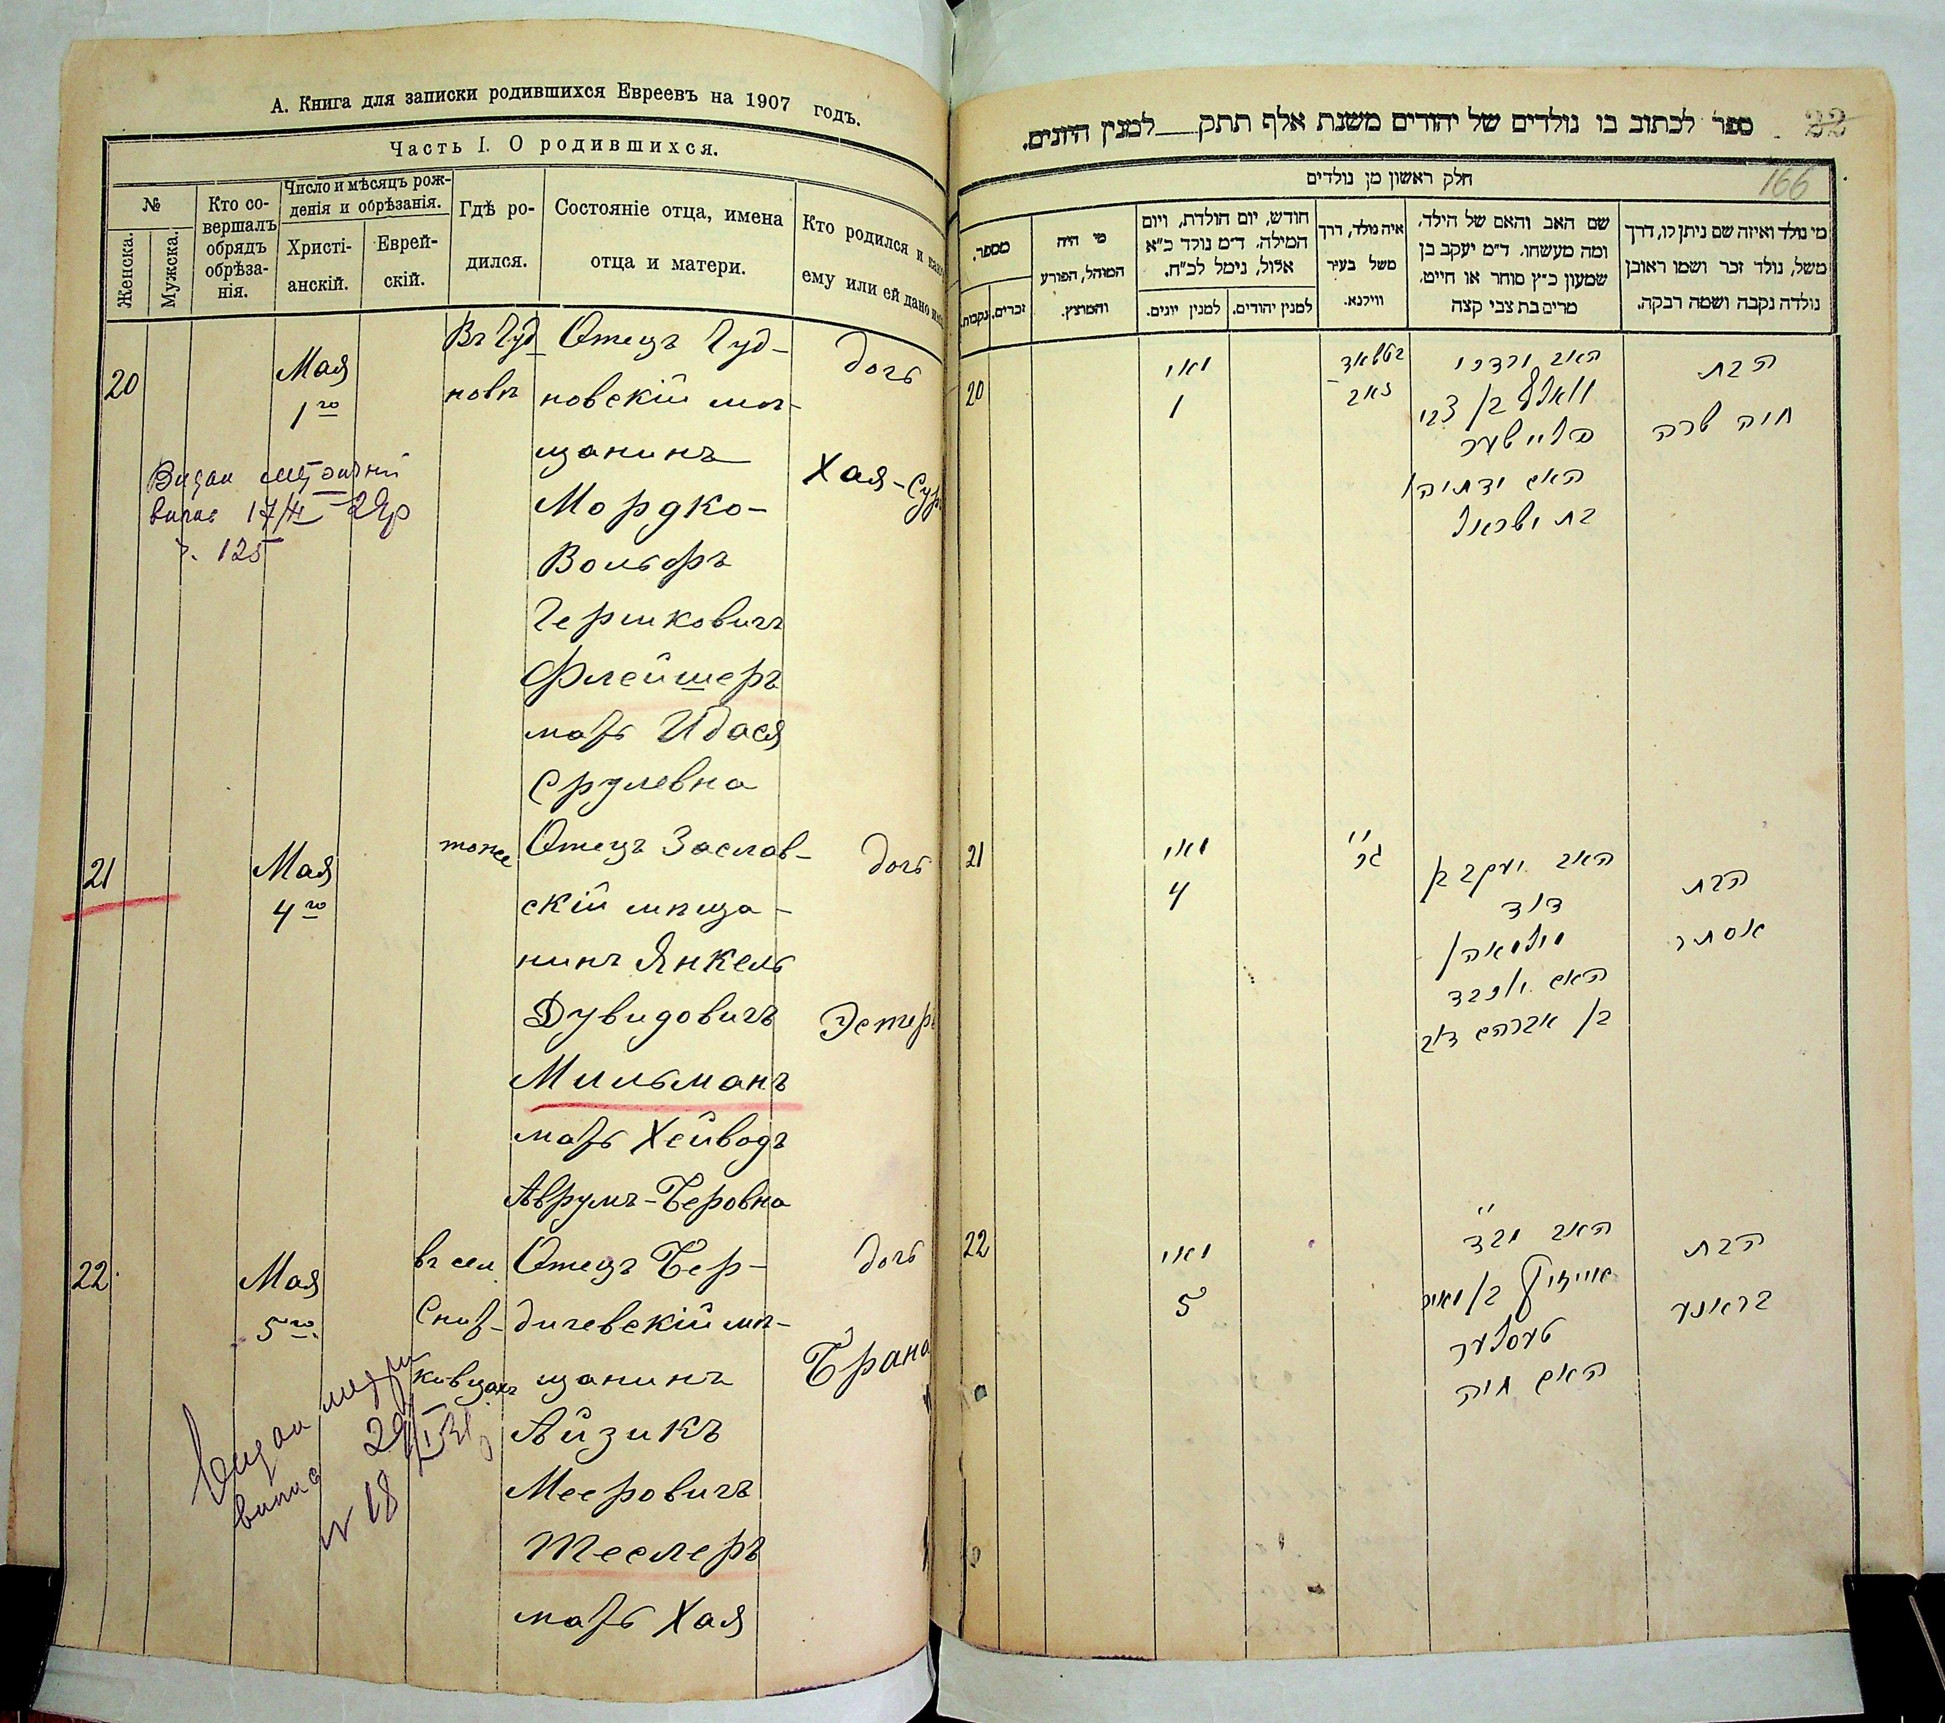 А. Книга для записки родившихся Евреевъ на 1907 годъ.
Часть I. О родившихся.
№
Женска.
Мужска.
Кто со-
вершалъ
обрядъ
обрѣза-
нія.
Число и мѣсяцъ рож-
денія и обрѣзанія.
Христі-
анскій.
Еврей-
скій.
Гдѣ ро-
дился.
Состояніе отца, имена
отца и матери.
Кто родился и
ему или ей дано
20
Мая
1го
Въ Чуд
новѣ
Отецъ Чуд-
новскій мѣ-
щанинъ
Мордко-
Вольфъ
Гершковичъ
Флейшеръ
мать Идася
Срулевна
дочь
Хая-Сур
17/II 29р
ч. 125
21
Мая
4го
тоже
Отецъ Заслав-
скій мѣща-
нинъ Янкель
Дувидовичъ
Мильманъ
мать Хейводъ
Аврумъ-Беровна
дочь
Эстеръ
22
Мая
5го
въ сел
Отецъ Бер-
дичевскій мѣ-
щанинъ
Айзикъ
Мееровичъ
Теслеръ
мать Хая
дочь
Брана
Видан
№ 18
22
ספר לכתוב בו נולדים של יהודים משנת אלף תתק למנין היונים.
166
חלק ראשון מן נולדים
מי נולד ואיזה שם ניתן לו, דרך
משל, נולד זכר ושמו ראובן
נולדה נקבה ושמה רבקה.
שם האב והאם של הילד,
ומה מעשהו. ד"מ יעקב בן
שמעון כ"ץ סוחר או חייט.
מרים בת צבי קצה
איה נולד, דרך
משל בעיר
ווילנא.
חודש, יום הולדת, ויום
המילה. ד"מ נולד כ"א
אלול, נימל לכ"ח.
למנין יהודים.
למנין יונים.
מי היה
המוהל, הפורע
והמוצץ.
מספר.
זכרים.
נקבות.
20
מאי
1
האב מרדכי
וואלף בן צבי
פליישער
האם
בת ישראל
הבת
חוה שרה
21
מאי
4
האב יעקב בן
דוד
מילמאן
האם יוכבד
בן אברהם דוב
הבת
אסתר
22
מאי
5
האב
אייזיק בן מאיר
טעסלער
האם חיה
הבת
בראנע